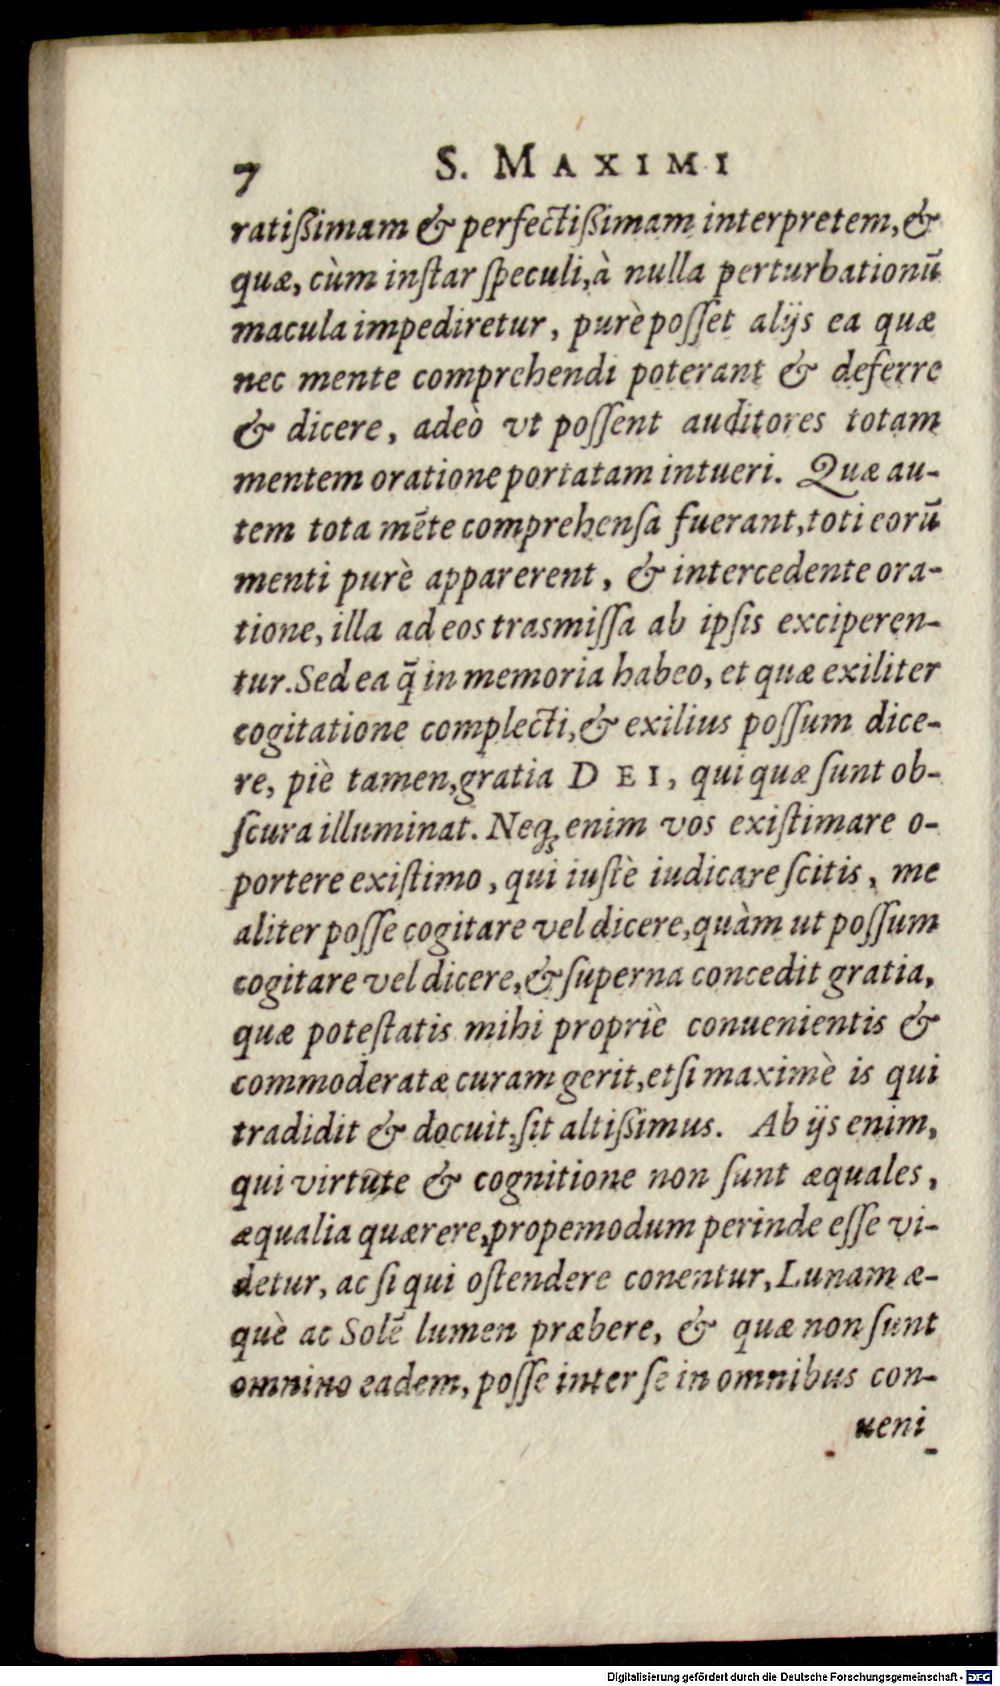 7 S. MAXIMI
ratißimam & perfectißimam interpretem, &
quæ, cùm inſtar ſpeculi, à nulla perturbationū
macula impediretur, purè poſſet alijs ea quæ
nec mente comprehendi poterant & deferre
& dicere, adeò vt poſſent auditores totam
mentem oratione portatam intueri. Quæ au-
tem tota mēte comprehenſa fuerant, toti eorū
menti purè apparerent, & intercedente ora-
tione, illa ad eos trasmiſſa ab ipſis exciperen-
tur. Sed ea q̄ in memoria habeo, et quæ exiliter
cogitatione complecti, & exilius poſſum dice-
re, piè tamen, gratia DEI, qui quæ ſunt ob-
ſcura illuminat. Neq; enim vos exiſtimare o-
portere exiſtimo, qui iuſtè iudicare ſcitis, me
aliter poſſe cogitare vel dicere, quàm ut poſſum
cogitare vel dicere, & ſuperna concedit gratia,
quæ poteſtatis mihi propriè conuenientis &
commoderatæ curam gerit, etſi maximè is qui
tradidit & docuit, ſit altißimus. Ab ijs enim,
qui virtute & cognitione non ſunt æquales,
æqualia quærere, propemodum perinde eſſe vi-
detur, ac ſi qui oſtendere conentur, Lunam æ-
què ac Solē lumen præbere, & quæ non ſunt
omnino eadem, poſſe inter ſe in omnibus con-
ueni
Digitalisierung gefördert durch die Deutsche Forschungsgemeinschaft - DFG